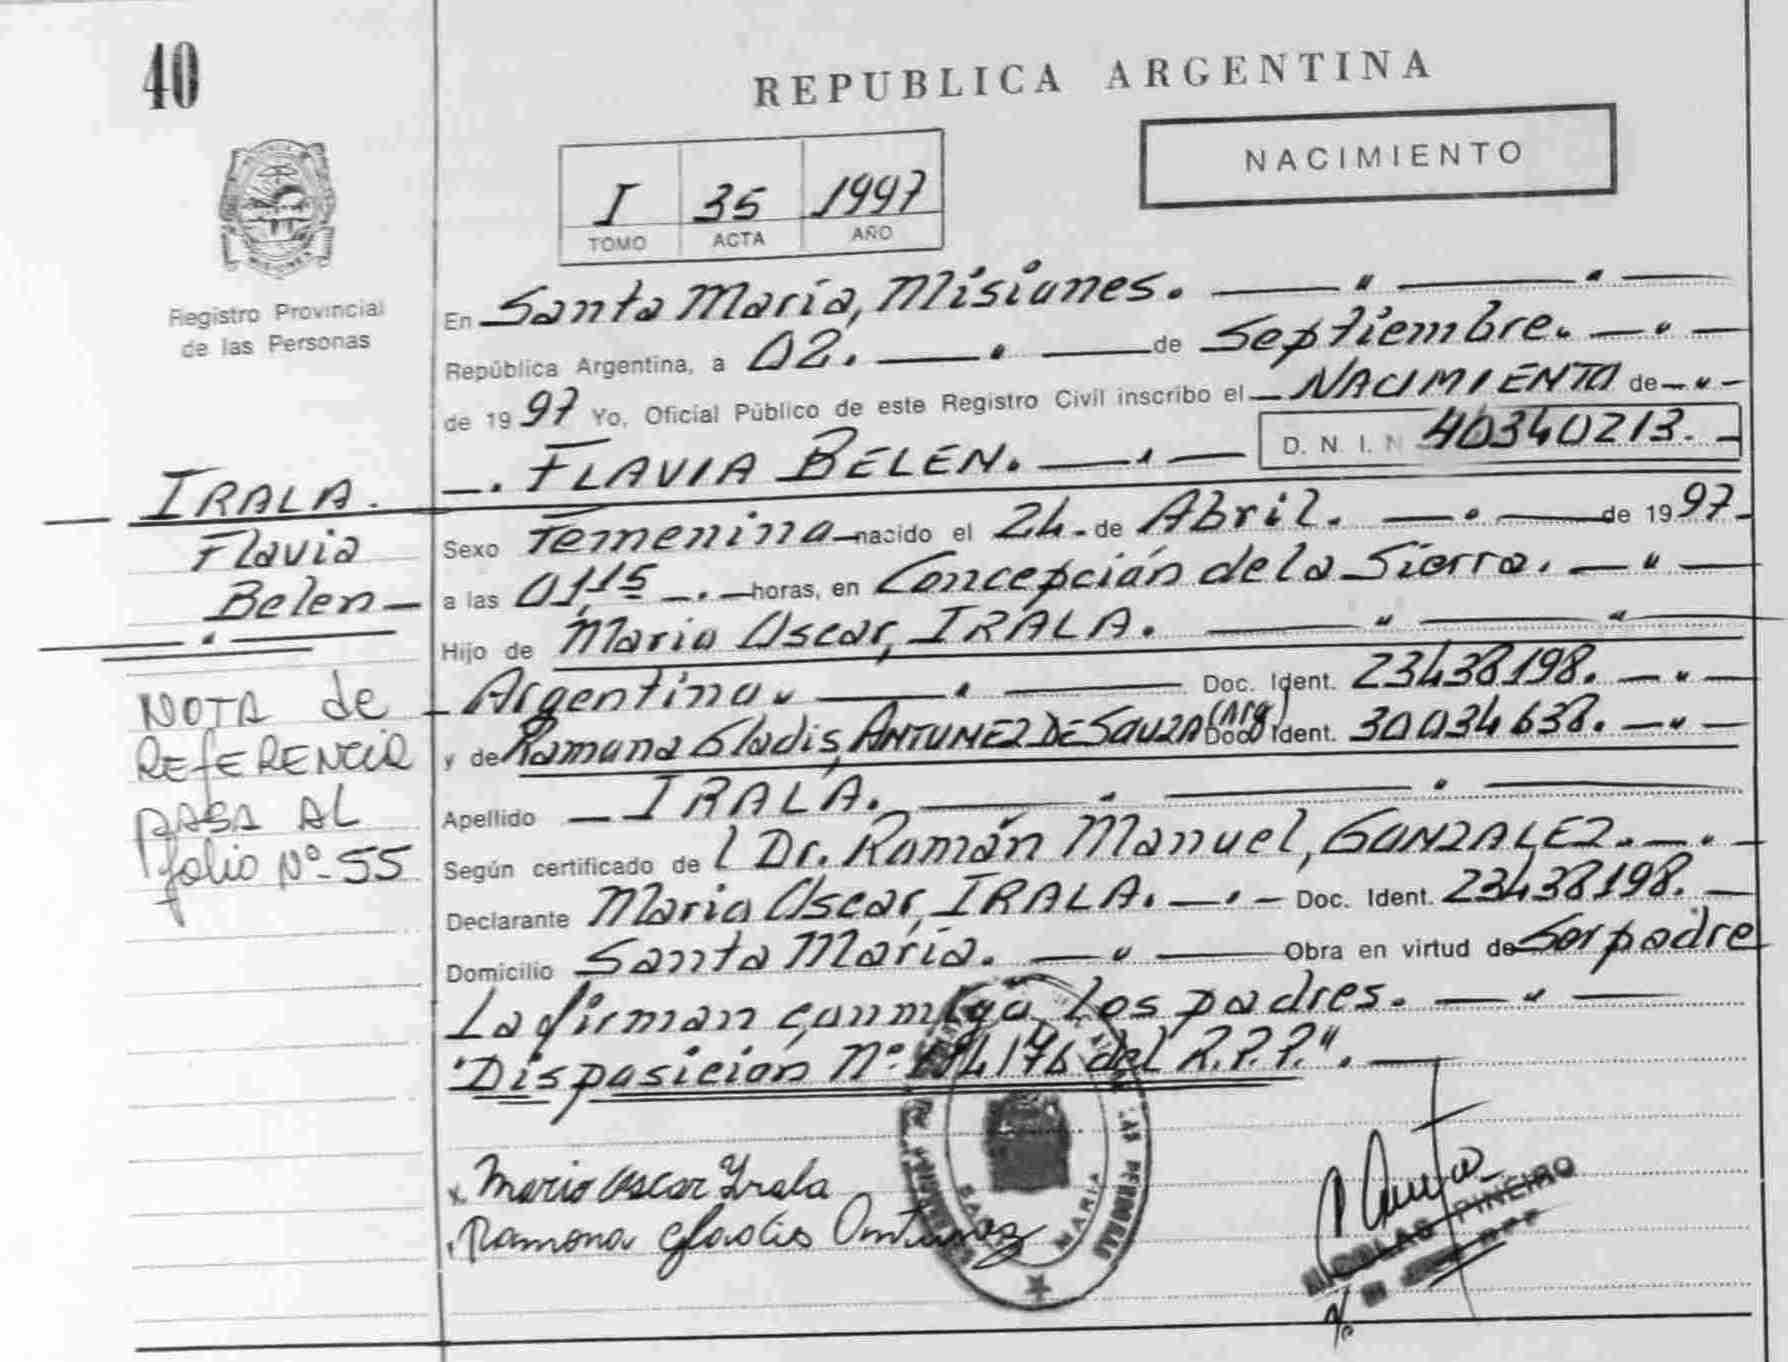 40
REPUBLICA ARGENTINA
NACIMIENTO
I 35 1997
TOMO ACTA AÑO
Registro Provincial
de las Personas
En Santa María, Misiones.
República Argentina, a 02. de Septiembre.
de 1997 Yo, Oficial Público de este Registro Civil inscribo el NACIMIENTO de
FLAVIA BELEN. D. N. I. N 40340213.
IRALA.
Flavia
Belen
Sexo Femenina nacido el 24 de Abril. de 1997
a las 01,15 horas, en Concepción de la Sierra.
Hijo de Mario Oscar, IRALA.
Argentino. Doc. Ident. 23438198.
y de Ramona Gladis, ANTUNEZ DE SOUZA (Arg.) Doc. Ident. 30034638.
Apellido IRALA.
Según certificado de l Dr. Román Manuel, GONZALEZ.
Declarante Mario Oscar, IRALA. Doc. Ident. 23438198.
Domicilio Santa María. Obra en virtud de Ser padre
La firman conmigo los padres.
"Disposición Nº 174176 del R.P.P.".
NOTA de
REFERENCIA
PASA AL
folio Nº 55
x Mario Oscar Irala
Ramona Gladis Antunez
MARIA
NICOLAS PINEIRO